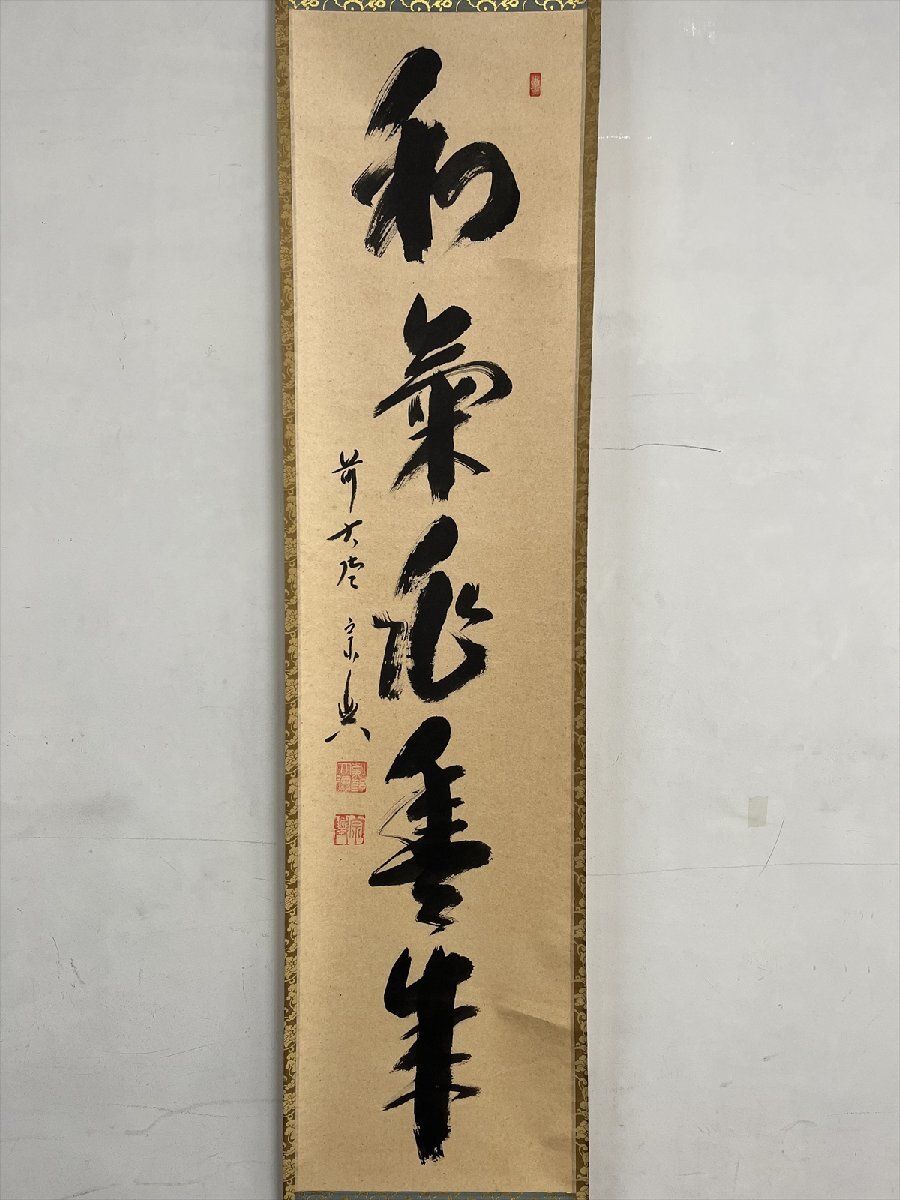 和氣兆豊年
前大徳 宗典